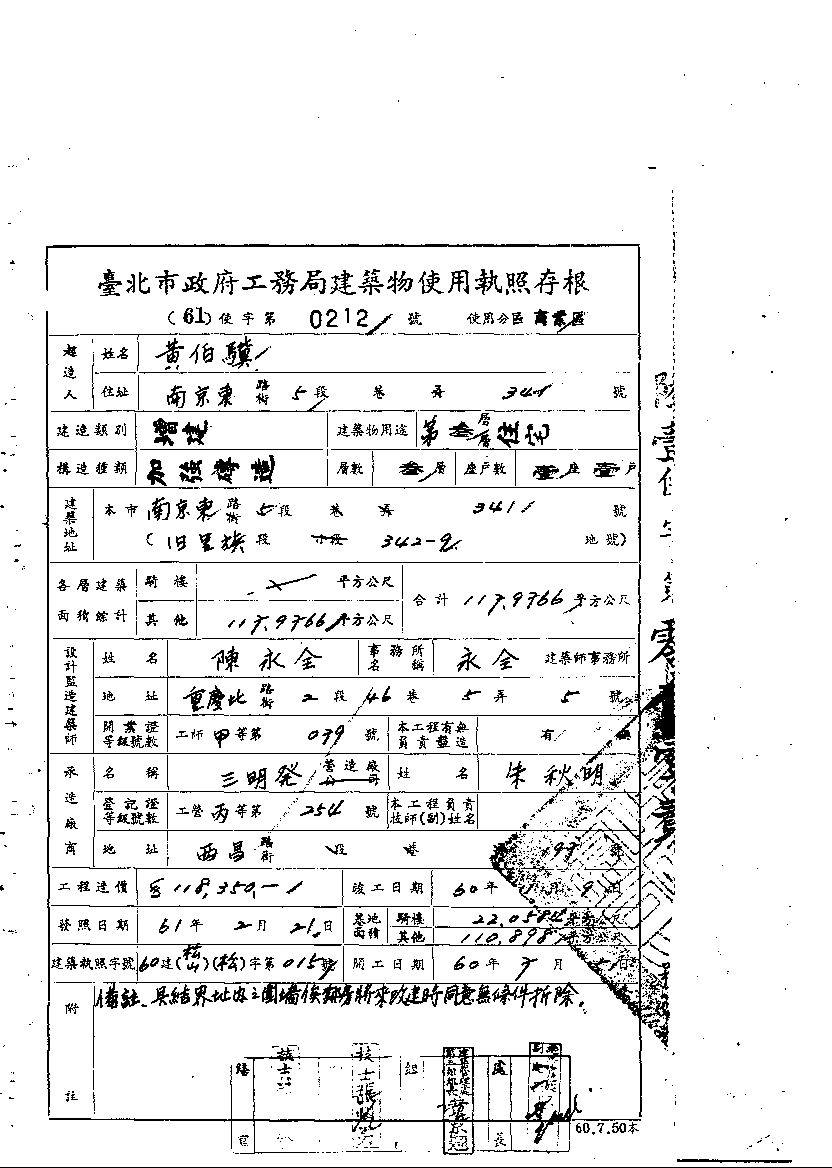 臺北市政府工務局建築物使用執照存根
(61)使字第 0212 號 使用分區 商業區
起造人 姓名 黃伯驥
住址 南京東 路街 5段 巷 弄 341 號
建造類別 增建 建築物用途 第叁層 住宅
構造種類 加強磚造 層數 叁層 座戶數 壹座 壹戶
建築地址 本市 南京東 路街 5段 巷 弄 341 號
(旧里族 段 小段 342-9 地號)
各層建築面積總計 騎樓 平方公尺
其他 117.9766 平方公尺 合計 117.9766 平方公尺
設計監造建築師 姓名 陳永全 事務所名稱 永全 建築師事務所
地址 重慶北 路街 2段 46巷 5弄 5號
開業證等級號數 工師甲等第 039 號 本工程有無負責監造 有
承造廠商 名稱 三明發 營造廠公司 姓名 朱秋明
登記證等級號數 工營丙等第 254 號 本工程負責技師(副)姓名
地址 西昌 路街 段 巷
工程造價 118,350.- 竣工日期 60年 9日
發照日期 61年 2月 21日 基地面積 騎樓 22.0584 平方公尺
其他 110.898 平方公尺
建築執照字號 60建(松山)(松)字第015號 開工日期 60年 月 日
附註 備註、具結界址內之圍墻俟鄰房將來改建時同意無條件拆除。
技士
組
處長
60.7.50本